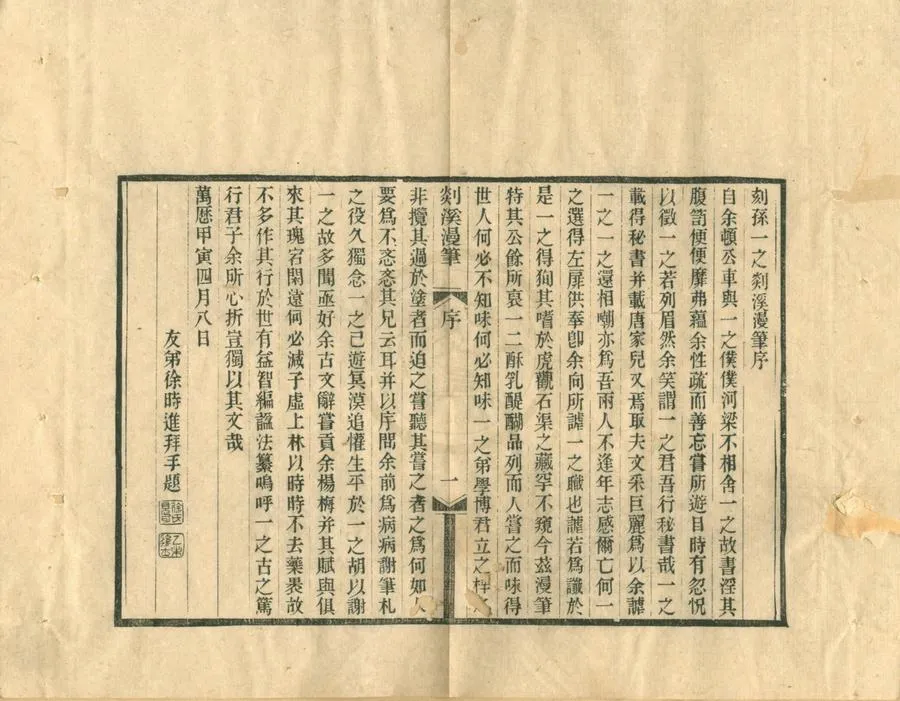 刻孫一之剡溪漫筆序
自余頓公車與一之僕僕河梁不相舍一之故書淫其
腹笥便便靡弗蘊余性疏而善忘嘗所遊目時有忽怳
以徵一之若列眉然余笑謂一之君吾行秘書哉一之
載得秘書并載唐家兒又焉取夫文采巨麗爲以余謔
一之一之還相嘲亦爲吾兩人不逢年志感爾亡何一
之選得左扉洪奉卽余向所謔一之職也謔若爲讖於
是一之得狥其嗜於虎觀石渠之藏罕不窺今茲漫筆
特其公餘所裒一二酥乳醍醐品列而人嘗之而味得
世人何必不知味何必知味一之弟學博君立之梓
剡溪漫筆
序
一
非攬其過於塗者而追之嘗聽其嘗之者之爲何如人
要爲不忞忞其兄云耳并以序問余前爲病病謝筆札
之役久獨念一之已遊冥漠追懽生平於一之胡以謝
一之故多聞亟好余古文辭嘗貢余楊梅并其賦與俱
來其瑰宕閑遠何必減子虛上林以時時不去藥褁故
不多作其行於世有益智編諡法纂嗚呼一之古之篤
行君子余所心折豈獨以其文哉
萬曆甲寅四月八日
友弟徐時進拜手題